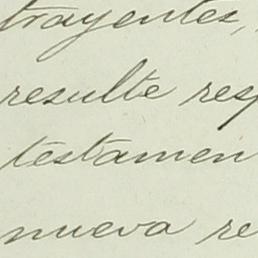 trayentes,
resulte resp
testamen
nueva re